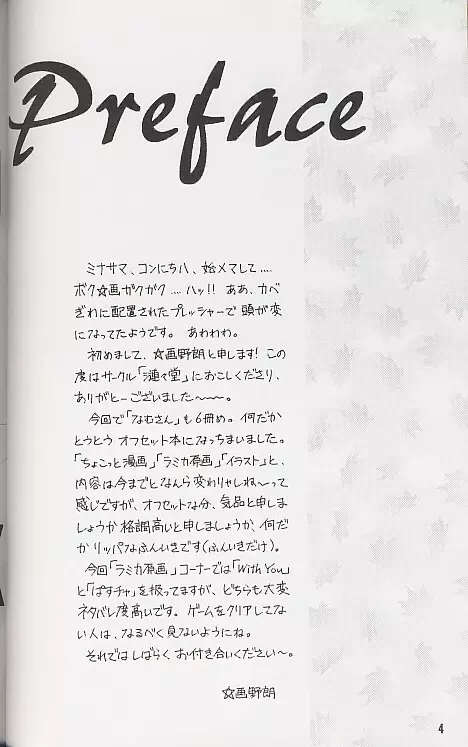 Preface
ミナサマ、コンにちハ、始メマして‥‥
ボク☆画ガクガク‥‥ハッ!! ああ、カベ
ぎわに配置されたプレッシャーで頭が変
になってたようです。 あわわわ。
初めまして、☆画野朗と申します! この
度はサークル「漣々堂」におこしくださり、
ありがとーございました〜〜〜。
今回で「なむさん」も6冊め。何だか
とうとう オフセット本になっちまいました。
「ちょこっと漫画」「ラミカ原画」「イラスト」と、
内容は今までとなんら変わりゃしね〜って
感じですが、オフセットな分、気品と申しま
しょうか格調高いと申しましょうか、何だ
か リッパなふんいきです(ふんいきだけ)。
今回「ラミカ原画」コーナーでは「With You」
と「ぱすチャ」を扱ってますが、どちらも大変
ネタバレ度高いです。ゲームをクリアしてな
い人は、なるべく見ないようにね。
それではしばらく お付き合いください〜。
☆画野朗
4